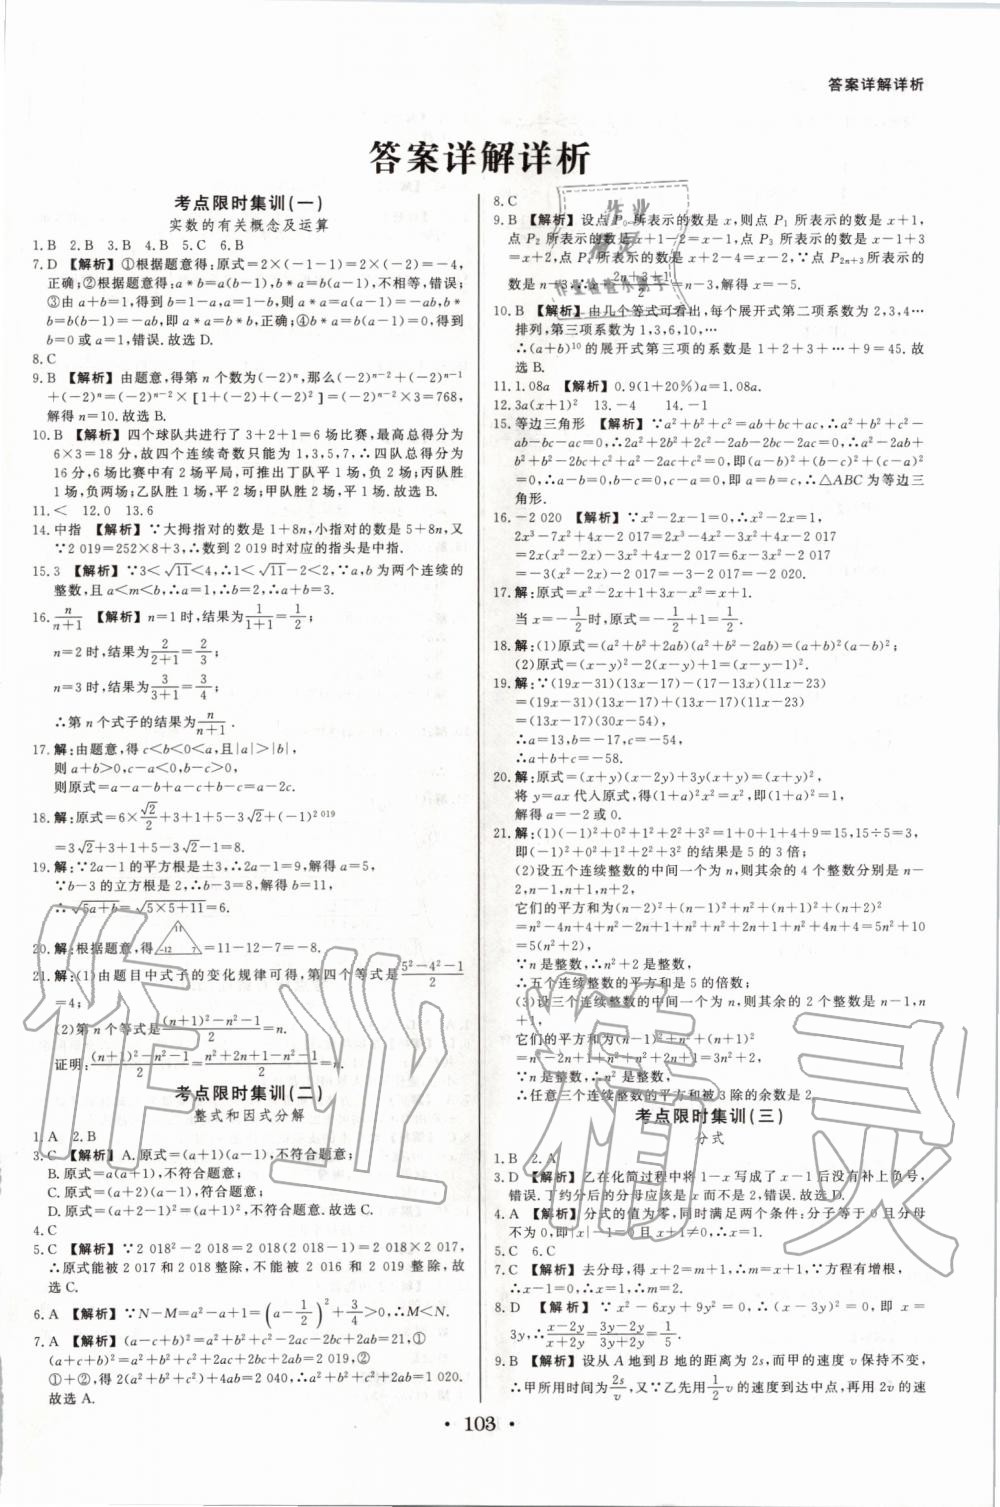 答案详解详析
答案详解详析
考点限时集训(一)
实数的有关概念及运算
1.B 2.B 3.B 4.B 5.C 6.B
7.D 【解析】①根据题意得:原式=2×(-1-1)=2×(-2)=-4,
正确;②根据题意得:a*b=a(b-1),b*a=b(a-1),不相等,错误;
③由a+b=1,得到b=1-a,a=1-b,则a*a=a(a-1)=-ab,b*
b=b(b-1)=-ab,即a*a=b*b,正确;④根据题意得:ab=0,得到
b=0或a=1,错误.故选D.
8.C
9.B 【解析】由题意,得第n个数为(-2)ⁿ,那么(-2)ⁿ⁻²+(-2)ⁿ⁻¹
+(-2)ⁿ=(-2)ⁿ⁻²×[1+(-2)+(-2)²]=(-2)ⁿ⁻²×3=768,
解得n=10.故选B.
10.B 【解析】四个球队共进行了3+2+1=6场比赛,最高总得分
6×3=18分,故四个连续奇数只能为1,3,5,7,∴四队总得分共
16分,6场比赛中有2场平局,可推出丁队平1场,负2场;丙队胜
1场,负2场;乙队胜1场,平2场;甲队胜2场,平1场.故选B.
11.< 12.0 13.6
14.中指 【解析】∵大拇指对的数是1+8n,小指对的数是5+8n,又
∵2 019=252×8+3,∴数到2 019时对应的指头是中指.
15.3 【解析】∵3<√11<4,∴1<√11-2<2,∵a,b为两个连续的
整数,且a<m<b,∴a=1,b=2,∴a+b=3.
16.n/(n+1) 【解析】n=1时,结果为1/(1+1)=1/2;
n=2时,结果为2/(2+1)=2/3;
n=3时,结果为3/(3+1)=3/4;
∴第n个式子的结果为n/(n+1).
17.解:由题意,得c<b<0<a,且|a|>|b|,
则a+b>0,c-a<0,b-c>0,
则原式=a-a-b+a-c+b-c=a-2c.
18.解:原式=6×√2/2+3+1+5-3√2+(-1)²⁰¹⁹
=3√2+3+1+5-3√2-1=8.
19.解:∵2a-1的平方根是±3,∴2a-1=9.解得a=5,
∵b-3的立方根是2,∴b-3=8.解得b=11,
∴√(5a+b)=√(5×5+11)=6.
20.解:根据题意,得 11 -12 7 =11-12-7=-8.
21.解:(1)由题目中式子的变化规律可得,第四个等式是(5²-4²-1)/2
=4;
(2)第n个等式是((n+1)²-n²-1)/2=n.
证明:((n+1)²-n²-1)/2=(n²+2n+1-n²-1)/2=n.
考点限时集训(二)
整式和因式分解
1.A 2.B
3.C 【解析】A.原式=(a+1)(a-1),不符合题意;
B.原式=a(a+1),不符合题意;
C.原式=(a+2)(a-1),符合题意;
D.原式=(a+2-1)²=(a+1)²,不符合题意.故选C.
4.C
5.C 【解析】∵2 018²-2 018=2 018(2 018-1)=2 018×2 017,
∴原式能被2 017和2 018整除,不能被2 016和2 019整除.故
选C.
6.A 【解析】∵N-M=a²-a+1=(a-1/2)²+3/4>0,∴M<N.
7.A 【解析】(a-c+b)²=a²+b²+c²-2ac-2bc+2ab=21,①
(a+c+b)²=a²+b²+c²+2ac+2bc+2ab=2 019,②
①+②,得2(a²+b²+c²)+4ab=2 040,∴a²+b²+c²+2ab=1 020.
故选A.
8.C
9.B 【解析】设点P₀所表示的数是x,则点P₁所表示的数是x+1,
点P₂所表示的数是x+1-2=x-1,点P₃所表示的数是x-1+3
=x+2,点P₄所表示的数是x+2-4=x-2,∵点P₂ₙ₊₃所表示的
数是n-3,∴x+(2n+3+1)/2=n-3,解得x=-5.
10.B 【解析】由几个等式可看出,每个展开式第二项系数为2,3,4…
排列,第三项系数为1,3,6,10,…
∴(a+b)¹⁰的展开式第三项的系数是1+2+3+…+9=45.故
选B.
11.1.08a 【解析】0.9(1+20%)a=1.08a.
12.3a(x+1)² 13.-4 14.-1
15.等边三角形 【解析】∵a²+b²+c²=ab+bc+ac,∴a²+b²+c²-
ab-bc-ac=0,∴2a²+2b²+2c²-2ab-2bc-2ac=0,∴a²-2ab+
b²+b²-2bc+c²+a²-2ac+c²=0,即(a-b)²+(b-c)²+(c-a)²
=0,∴a-b=0,b-c=0,c-a=0,即a=b=c,∴△ABC为等边三
角形.
16.-2 020 【解析】∵x²-2x-1=0,∴x²-2x=1,
2x³-7x²+4x-2 017=2x³-4x²-3x²+4x-2 017
=2x(x²-2x)-3x²+4x-2 017=6x-3x²-2 017
=-3(x²-2x)-2 017=-3-2 017=-2 020.
17.解:原式=x²-2x+1+3x-x²=x+1.
当x=-1/2时,原式=-1/2+1=1/2.
18.解:(1)原式=(a²+b²+2ab)(a²+b²-2ab)=(a+b)²(a-b)²;
(2)原式=(x-y)²-2(x-y)+1=(x-y-1)².
19.解:∵(19x-31)(13x-17)-(17-13x)(11x-23)
=(19x-31)(13x-17)+(13x-17)(11x-23)
=(13x-17)(30x-54),
∴a=13,b=-17,c=-54,
∴a+b+c=-58.
20.解:原式=(x+y)(x-2y)+3y(x+y)=(x+y)²,
将y=ax代入原式,得(1+a)²x²=x²,即(1+a)²=1,
解得a=-2或0.
21.解:(1)(-1)²+0²+1²+2²+3²=1+0+1+4+9=15,15÷5=3,
即(-1)²+0²+1²+2²+3²的结果是5的3倍;
(2)设五个连续整数的中间一个为n,则其余的4个整数分别是n-
2,n-1,n+1,n+2,
它们的平方和为(n-2)²+(n-1)²+n²+(n+1)²+(n+2)²
=n²-4n+4+n²-2n+1+n²+n²+2n+1+n²+4n+4=5n²+10
=5(n²+2),
∵n是整数,∴n²+2是整数,
∴五个连续整数的平方和是5的倍数;
(3)设三个连续整数的中间一个为n,则其余的2个整数是n-1,n
+1,
它们的平方和为(n-1)²+n²+(n+1)²
=n²-2n+1+n²+n²+2n+1=3n²+2,
∵n是整数,∴n²是整数,
∴任意三个连续整数的平方和被3除的余数是2.
考点限时集训(三)
分式
1.B 2.A
3.D 【解析】乙在化简过程中将1-x写成了x-1后没有补上负号,
错误.丁约分后的分母应该是x而不是2,错误.故选D.
4.A 【解析】分式的值为零,同时满足两个条件:分子等于0且分母
不为0,即|x|-1=0且x+1≠0,∴x=1.
5.C 6.C
7.C 【解析】去分母,得x+2=m+1,∴x=m-1,∵方程有增根,
∴x-1=0,∴x=1,∴m=2.
8.D 【解析】∵x²-6xy+9y²=0,∴(x-3y)²=0,即x=
3y,∴(x-2y)/(x+2y)=(3y-2y)/(3y+2y)=1/5.
9.B 【解析】设从A地到B地的距离为2s,而甲的速度v保持不变,
∴甲所用时间为2s/v,又∵乙先用1/2v的速度到达中点,再用2v的速
· 103 ·
作业精灵